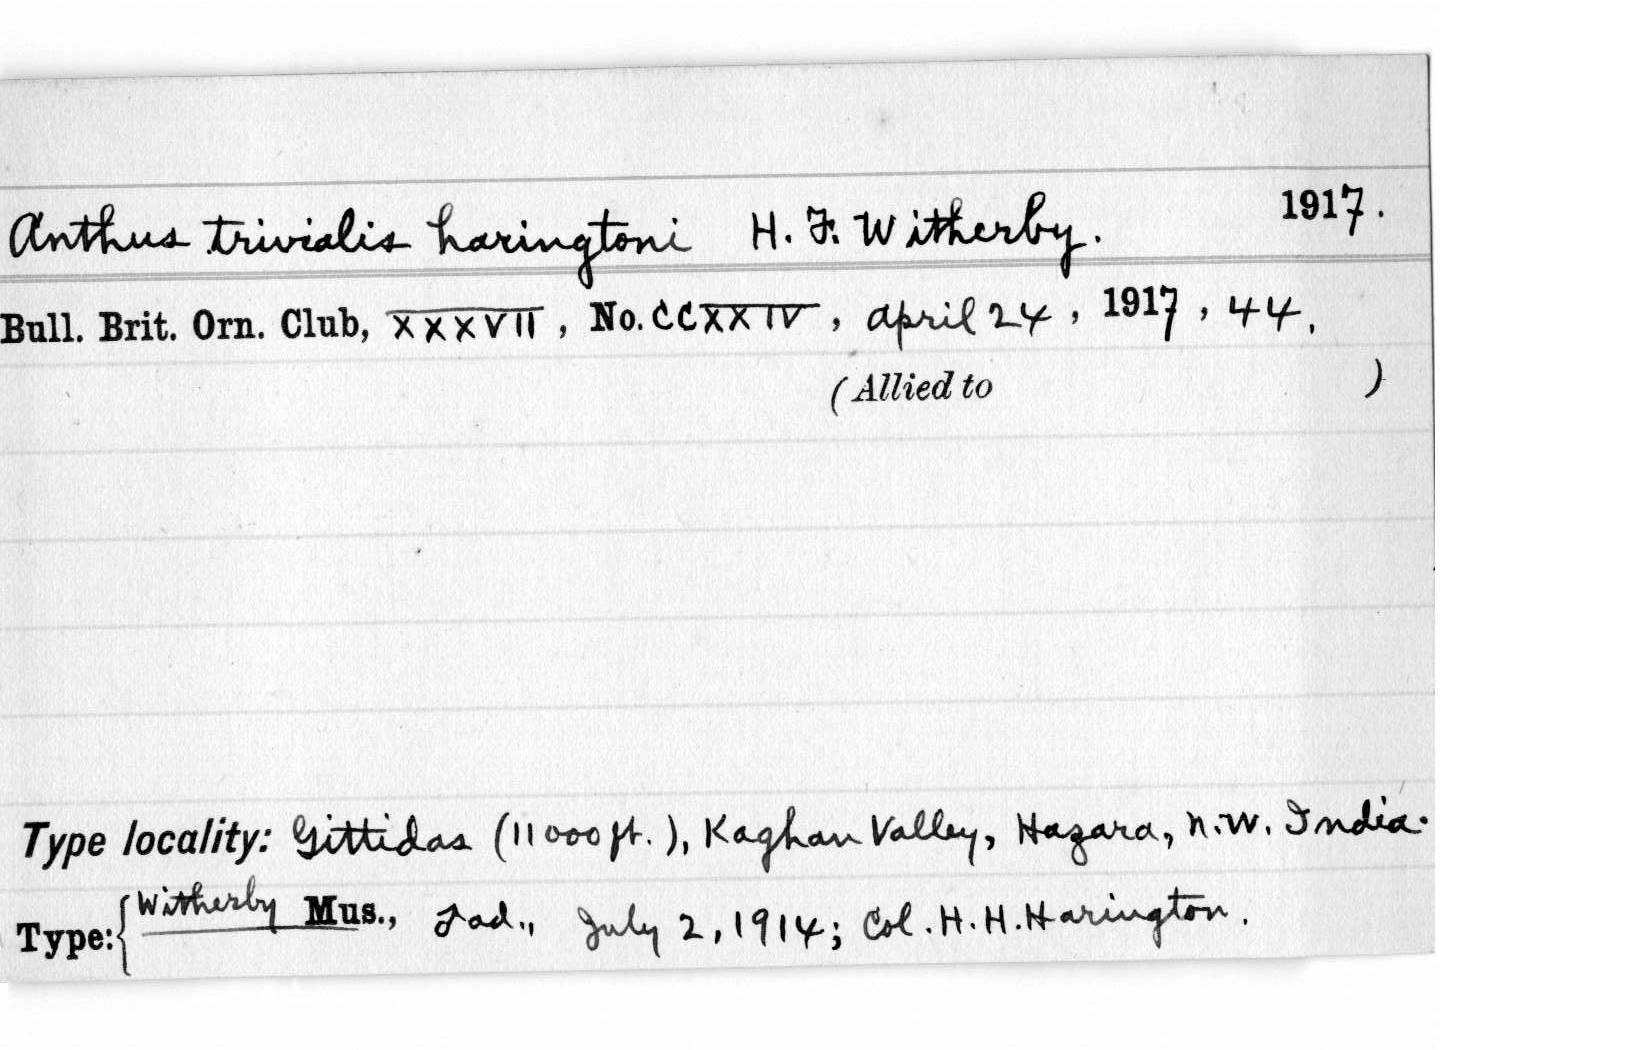 Anthus trivialis haringtoni H. F. Witherby. 1917.
Bull. Brit. Orn. Club, XXXVII, No. CCXXIV, April 24, 1917, 44.
(Allied to )
Type locality: Gittidas (11000 ft.), Kaghan Valley, Hazara, N.W. India.
Type: { Witherby Mus., ♂ ad., July 2, 1914; Col. H. H. Harington.